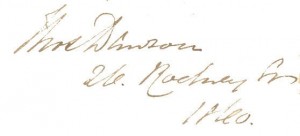 Thos Dawson
26. Rodney St
1860.